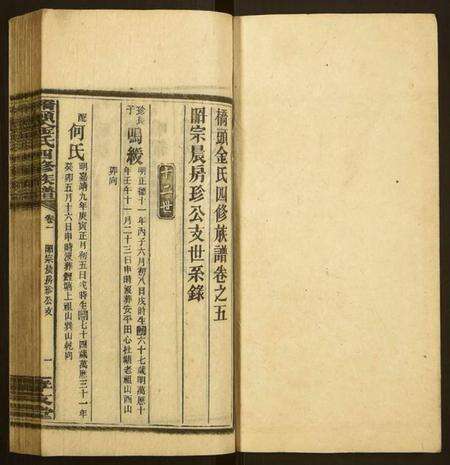 橋頭金氏四修族譜卷之五
昭宗晨房珍公支世系錄
十二世
珍長子
鳴綬
明正德十一年丙子六月初八日戌時生
六十七歲明萬曆十
年壬午十一月二十三日申時歿葬安平田心社壇老祖山酉山
卯向
配
何氏
明嘉靖九年庚寅正月初五日戌時生
七十四歲萬曆三十一年
癸卯五月十六日申時歿葬
上祖山巽山乾向
橋頭金氏四修族譜
卷一
昭宗晨房珍公支
一